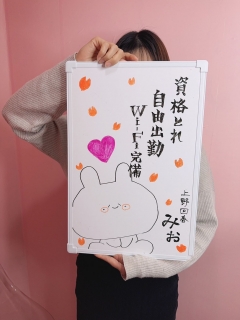 資格とれ
自由出勤
Wi-Fi完備
上野回春
みお